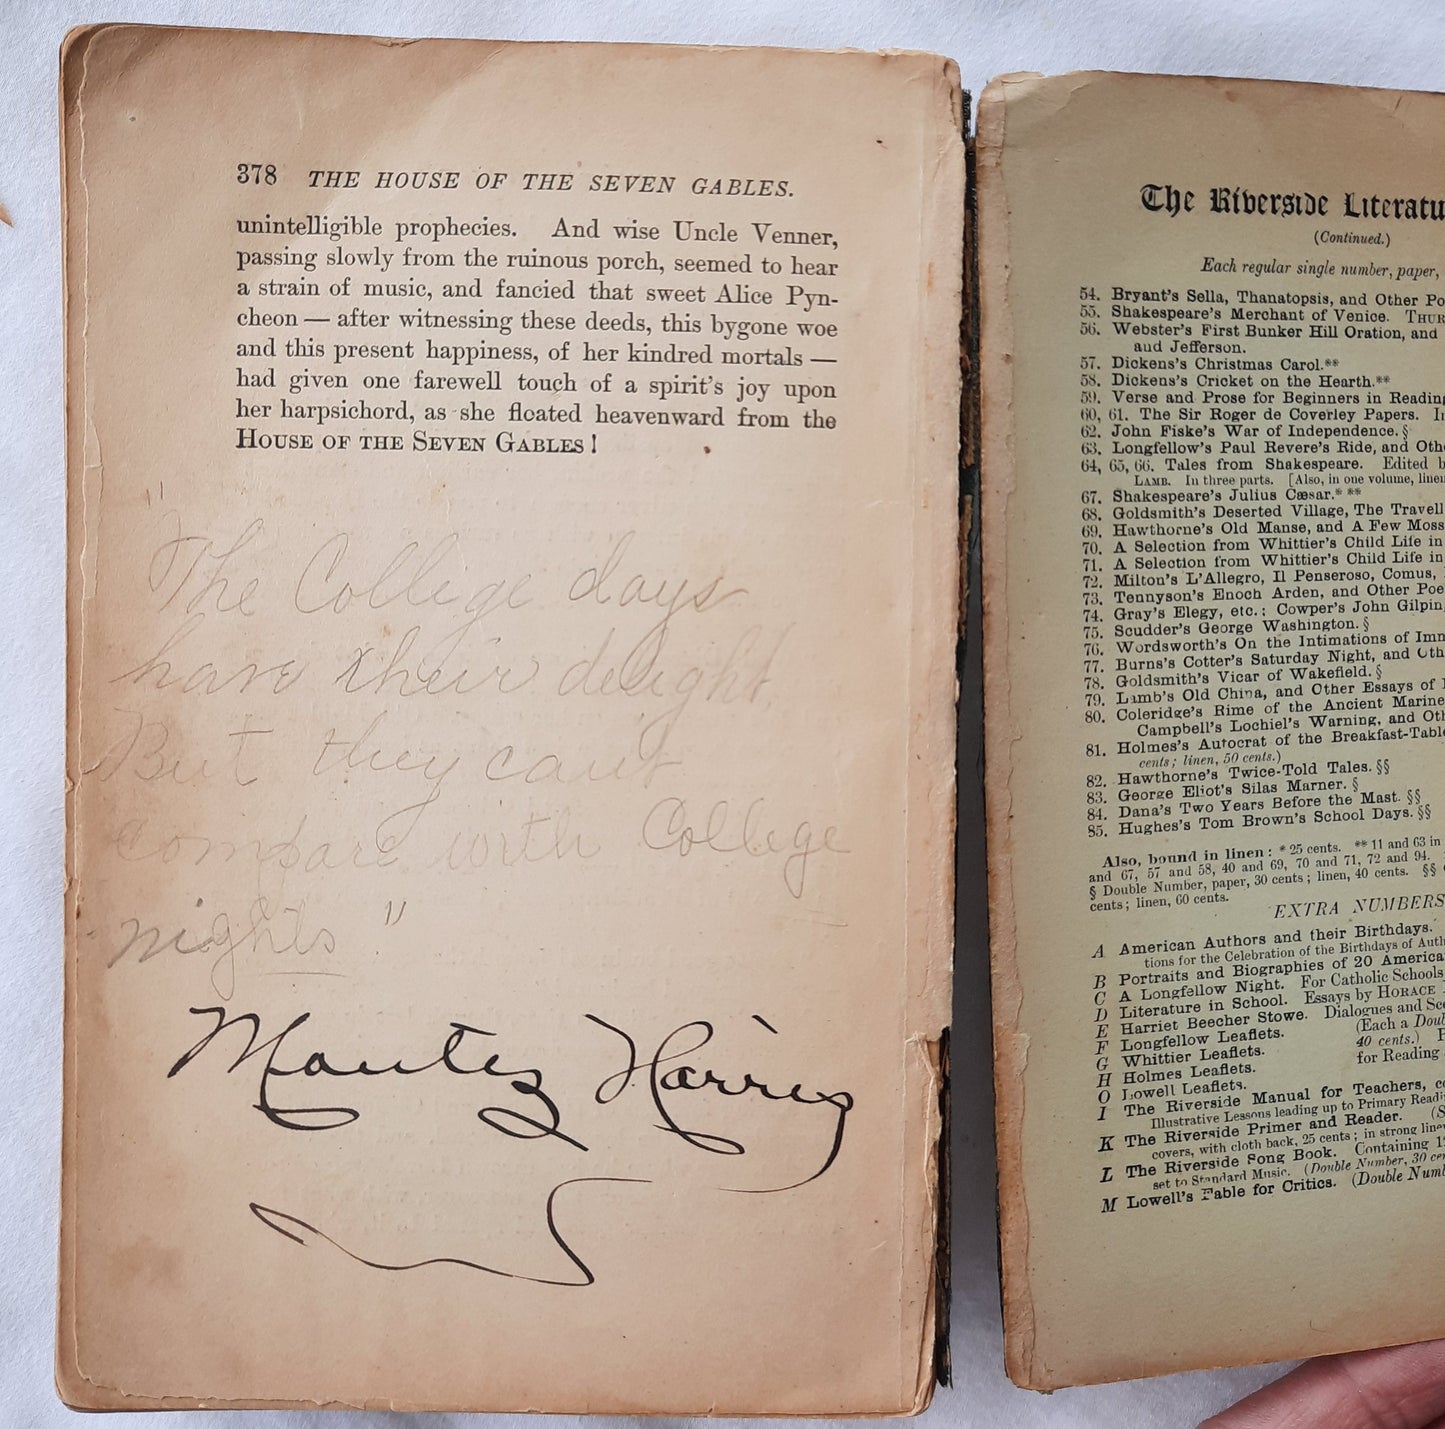 378 THE HOUSE OF THE SEVEN GABLES.
unintelligible prophecies. And wise Uncle Venner,
passing slowly from the ruinous porch, seemed to hear
a strain of music, and fancied that sweet Alice Pyn-
cheon — after witnessing these deeds, this bygone woe
and this present happiness, of her kindred mortals —
had given one farewell touch of a spirit's joy upon
her harpsichord, as she floated heavenward from the
HOUSE OF THE SEVEN GABLES!
"The College days
have their delight
But they can't
compare with College
nights"
Montez Harris
The Riverside Literatu
(Continued.)
Each regular single number, paper,
54. Bryant's Sella, Thanatopsis, and Other Po
55. Shakespeare's Merchant of Venice. THUR
56. Webster's First Bunker Hill Oration, and
and Jefferson.
57. Dickens's Christmas Carol.**
58. Dickens's Cricket on the Hearth.**
59. Verse and Prose for Beginners in Reading
60, 61. The Sir Roger de Coverley Papers. I
62. John Fiske's War of Independence.§
63. Longfellow's Paul Revere's Ride, and Oth
64, 65, 66. Tales from Shakespeare. Edited b
LAMB. In three parts. [Also, in one volume, linen
67. Shakespeare's Julius Cæsar.* **
68. Goldsmith's Deserted Village, The Travell
69. Hawthorne's Old Manse, and A Few Moss
70. A Selection from Whittier's Child Life in
71. A Selection from Whittier's Child Life in
72. Milton's L'Allegro, Il Penseroso, Comus,
73. Tennyson's Enoch Arden, and Other Poe
74. Gray's Elegy, etc.; Cowper's John Gilpin,
75. Scudder's George Washington.§
76. Wordsworth's On the Intimations of Imm
77. Burns's Cotter's Saturday Night, and Oth
78. Goldsmith's Vicar of Wakefield.§
79. Lamb's Old China, and Other Essays of
80. Coleridge's Rime of the Ancient Marine
Campbell's Lochiel's Warning, and Oth
81. Holmes's Autocrat of the Breakfast-Table
cents; linen, 50 cents.)
82. Hawthorne's Twice-Told Tales.§§
83. George Eliot's Silas Marner.§
84. Dana's Two Years Before the Mast.§§
85. Hughes's Tom Brown's School Days.§§
Also, bound in linen: * 25 cents. ** 11 and 63 in
and 67, 57 and 58, 40 and 69, 70 and 71, 72 and 94.
§ Double Number, paper, 30 cents; linen, 40 cents. §§
cents; linen, 60 cents.
EXTRA NUMBERS
A American Authors and their Birthdays.
tions for the Celebration of the Birthdays of Auth
B Portraits and Biographies of 20 America
C A Longfellow Night. For Catholic Schools
D Literature in School. Essays by HORACE
E Harriet Beecher Stowe. Dialogues and Sce
F Longfellow Leaflets. (Each a Doub
G Whittier Leaflets. 40 cents.)
H Holmes Leaflets. for Reading
O Lowell Leaflets.
I The Riverside Manual for Teachers, co
Illustrative Lessons leading up to Primary Readi
K The Riverside Primer and Reader. (S
covers, with cloth back, 25 cents; in strong linen
L The Riverside Song Book. Containing 1
set to Standard Music. (Double Number, 30 cen
M Lowell's Fable for Critics. (Double Numb